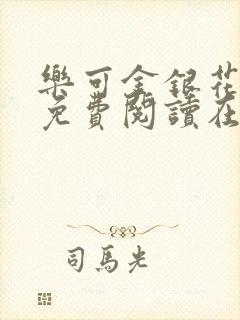 樂可金銀花
免費閱讀在
司馬光